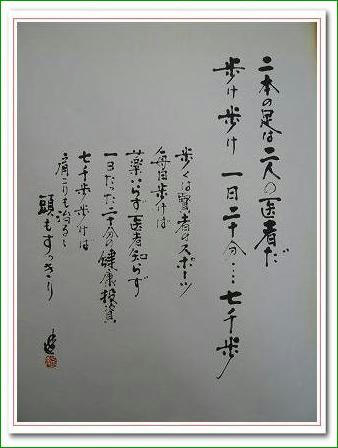 二本の足は二人の医者だ
歩け歩け 一日二十分…七千歩
歩くは賢者のスポーツ
毎日歩けば
薬いらず医者知らず
一日たった二十分の健康投資
七千歩歩けば
肩こりも治るし
頭もすっきり